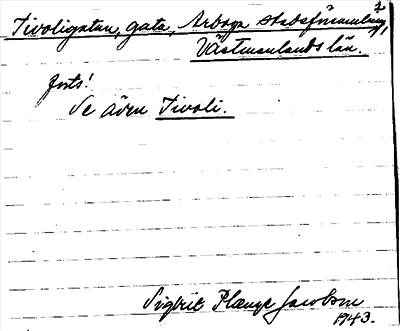 2
Tivoligatan, gata, Arboga stadsförsamling,
Västmanlands län.
forts!
Se även Tivoli.
Sigbrit Plænge Jacobson
1943.